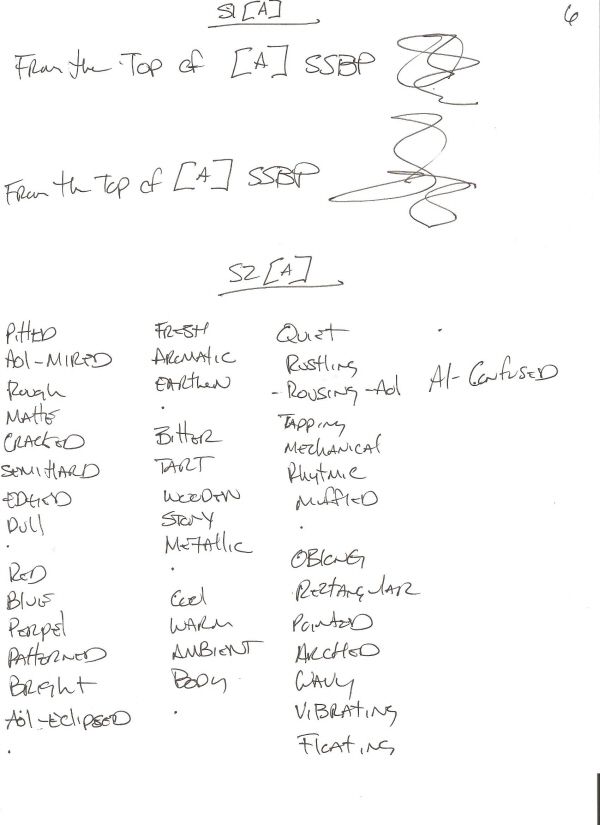 S1 [A]
6
From the Top of [A] SSBP
From the Top of [A] SSBP
S2 [A]
Pitted
Aol-Mired
Rough
Matte
Cracked
Semi Hard
Edged
Dull
.
Red
Blue
Perpel
Patterned
Bright
Aol-Eclipsed
.
Fresh
Aromatic
Earthen
.
Bitter
Tart
Wooden
Stony
Metallic
.
Cool
Warm
Ambient
Body
.
Quiet
Rustling
- Rousing - Aol
Tapping
Mechanical
Rhytmic
Muffled
.
Oblong
Rectangular
Pointed
Arched
Wavy
Vibrating
Floating
.
AI-Confused